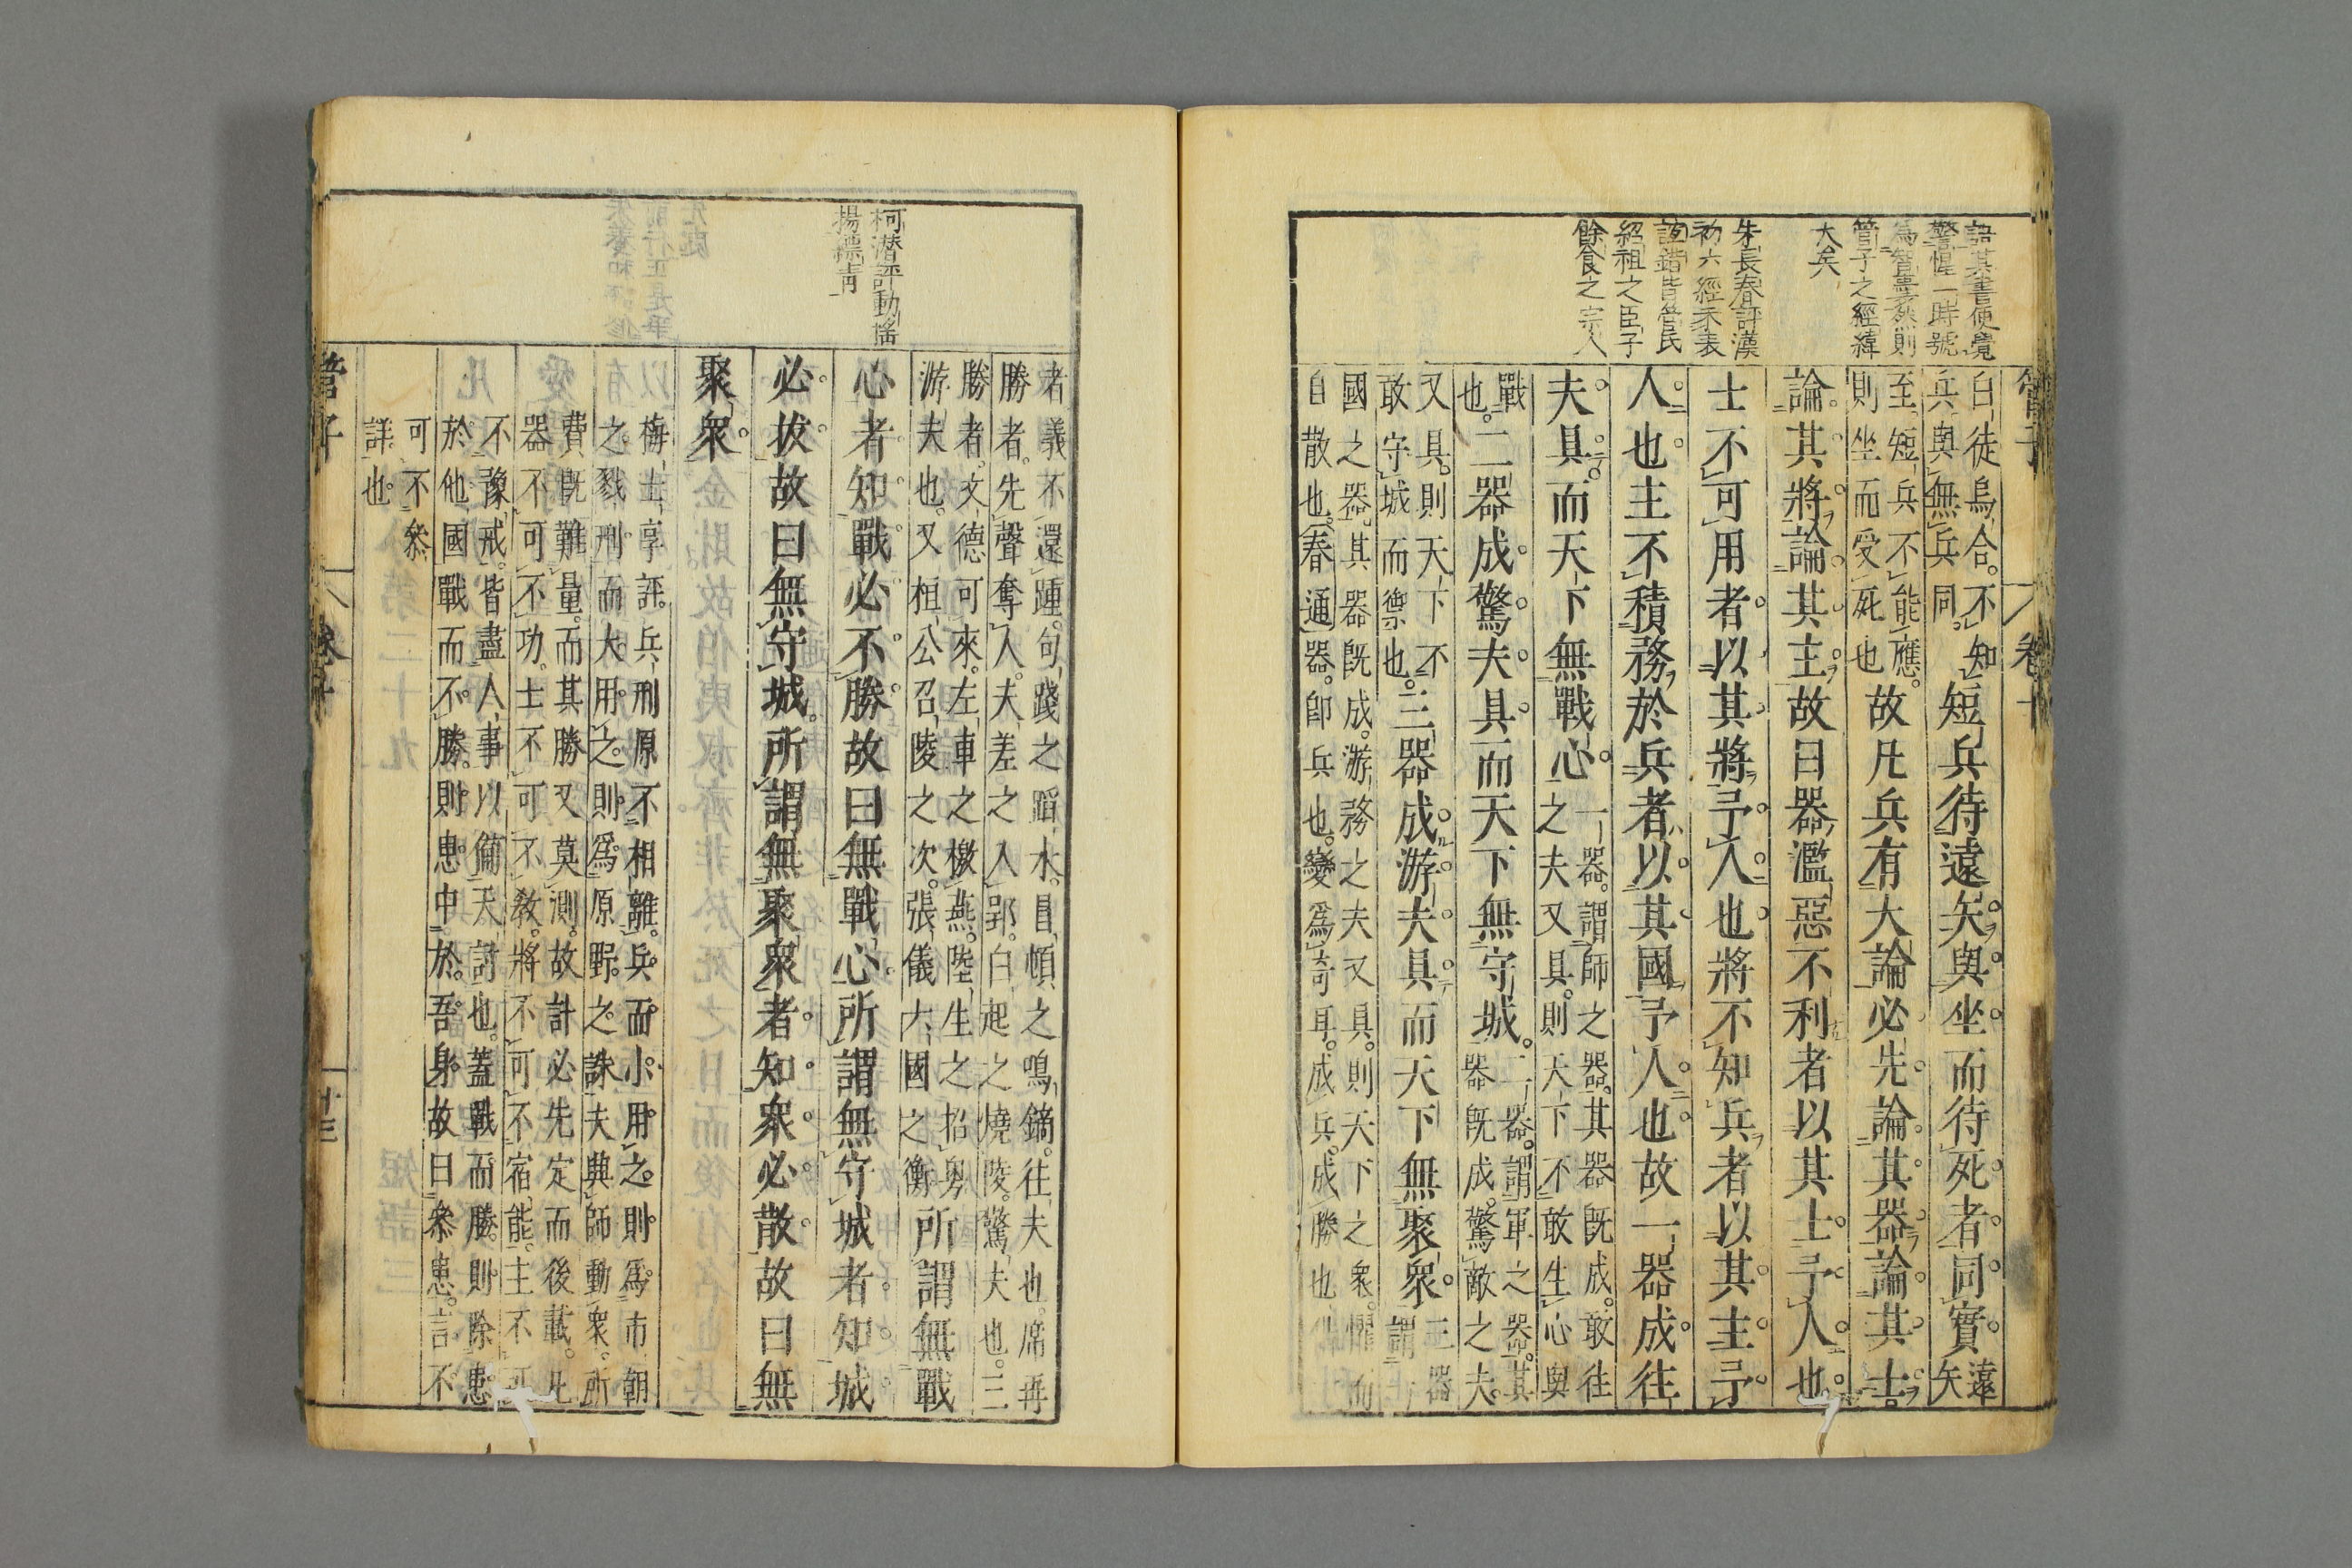 管子
卷十
語其書便覺
警惺一時號
為智囊然則
管子之經緯
大矣
朱長春評漢
初六經未表
誼錯皆管氏
紹祖之臣子
餘食之宗人
白徒烏合不知
兵與無兵同
短兵待遠矢與坐而待死者同實
遠
矢
至短兵不能應
則坐而受死也
故凡兵有大論必先論其器論其士
論其將論其主故曰器濫惡不利者以其士予人也
士不可用者以其將予人也將不知兵者以其主予
人也主不積務於兵者以其國予人也故一器成往
夫具而天下無戰心
一器謂師之器其器既成敢往
之夫又具則天下不敢生心與
戰
也
二器成驚夫具而天下無守城
二器謂軍之器其
器既成驚敵之夫
又具則天下不
敢守城而禦也
三器成游夫具而天下無聚眾
三器
謂
國之器其器既成游務之夫又具則天下之衆懼而
自散也春通器卽兵也變爲奇耳成兵成勝也
柯潛評動搖
揚漂靑
者義不還踵句踐之蹈水冒頓之鳴鏑往夫也席再
勝者先聲奪人夫差之入郢白起之燒陵驚夫也三
勝者文德可來左車之檄燕陸生之招粵
游夫也又桓公召陵之次張儀六國之衡
所謂無戰
心者知戰必不勝故曰無戰心所謂無守城者知城
必拔故曰無守城所謂無聚衆者知衆必散故曰無
聚衆
梅士享評兵刑原不相離兵而小用之則爲市朝
之戮刑而大用之則爲原野之誅夫典師動衆所
費既難量而其勝又莫測故計必先定而後載此
器不可不功士不可不敎將不可不宿能主不可
不豫戒皆盡人事以備天討也蓋戰而勝則除患
於他國戰而不勝則患中於吾身故曰叅患言不
可不叅
詳也
管子
卷十
廿三